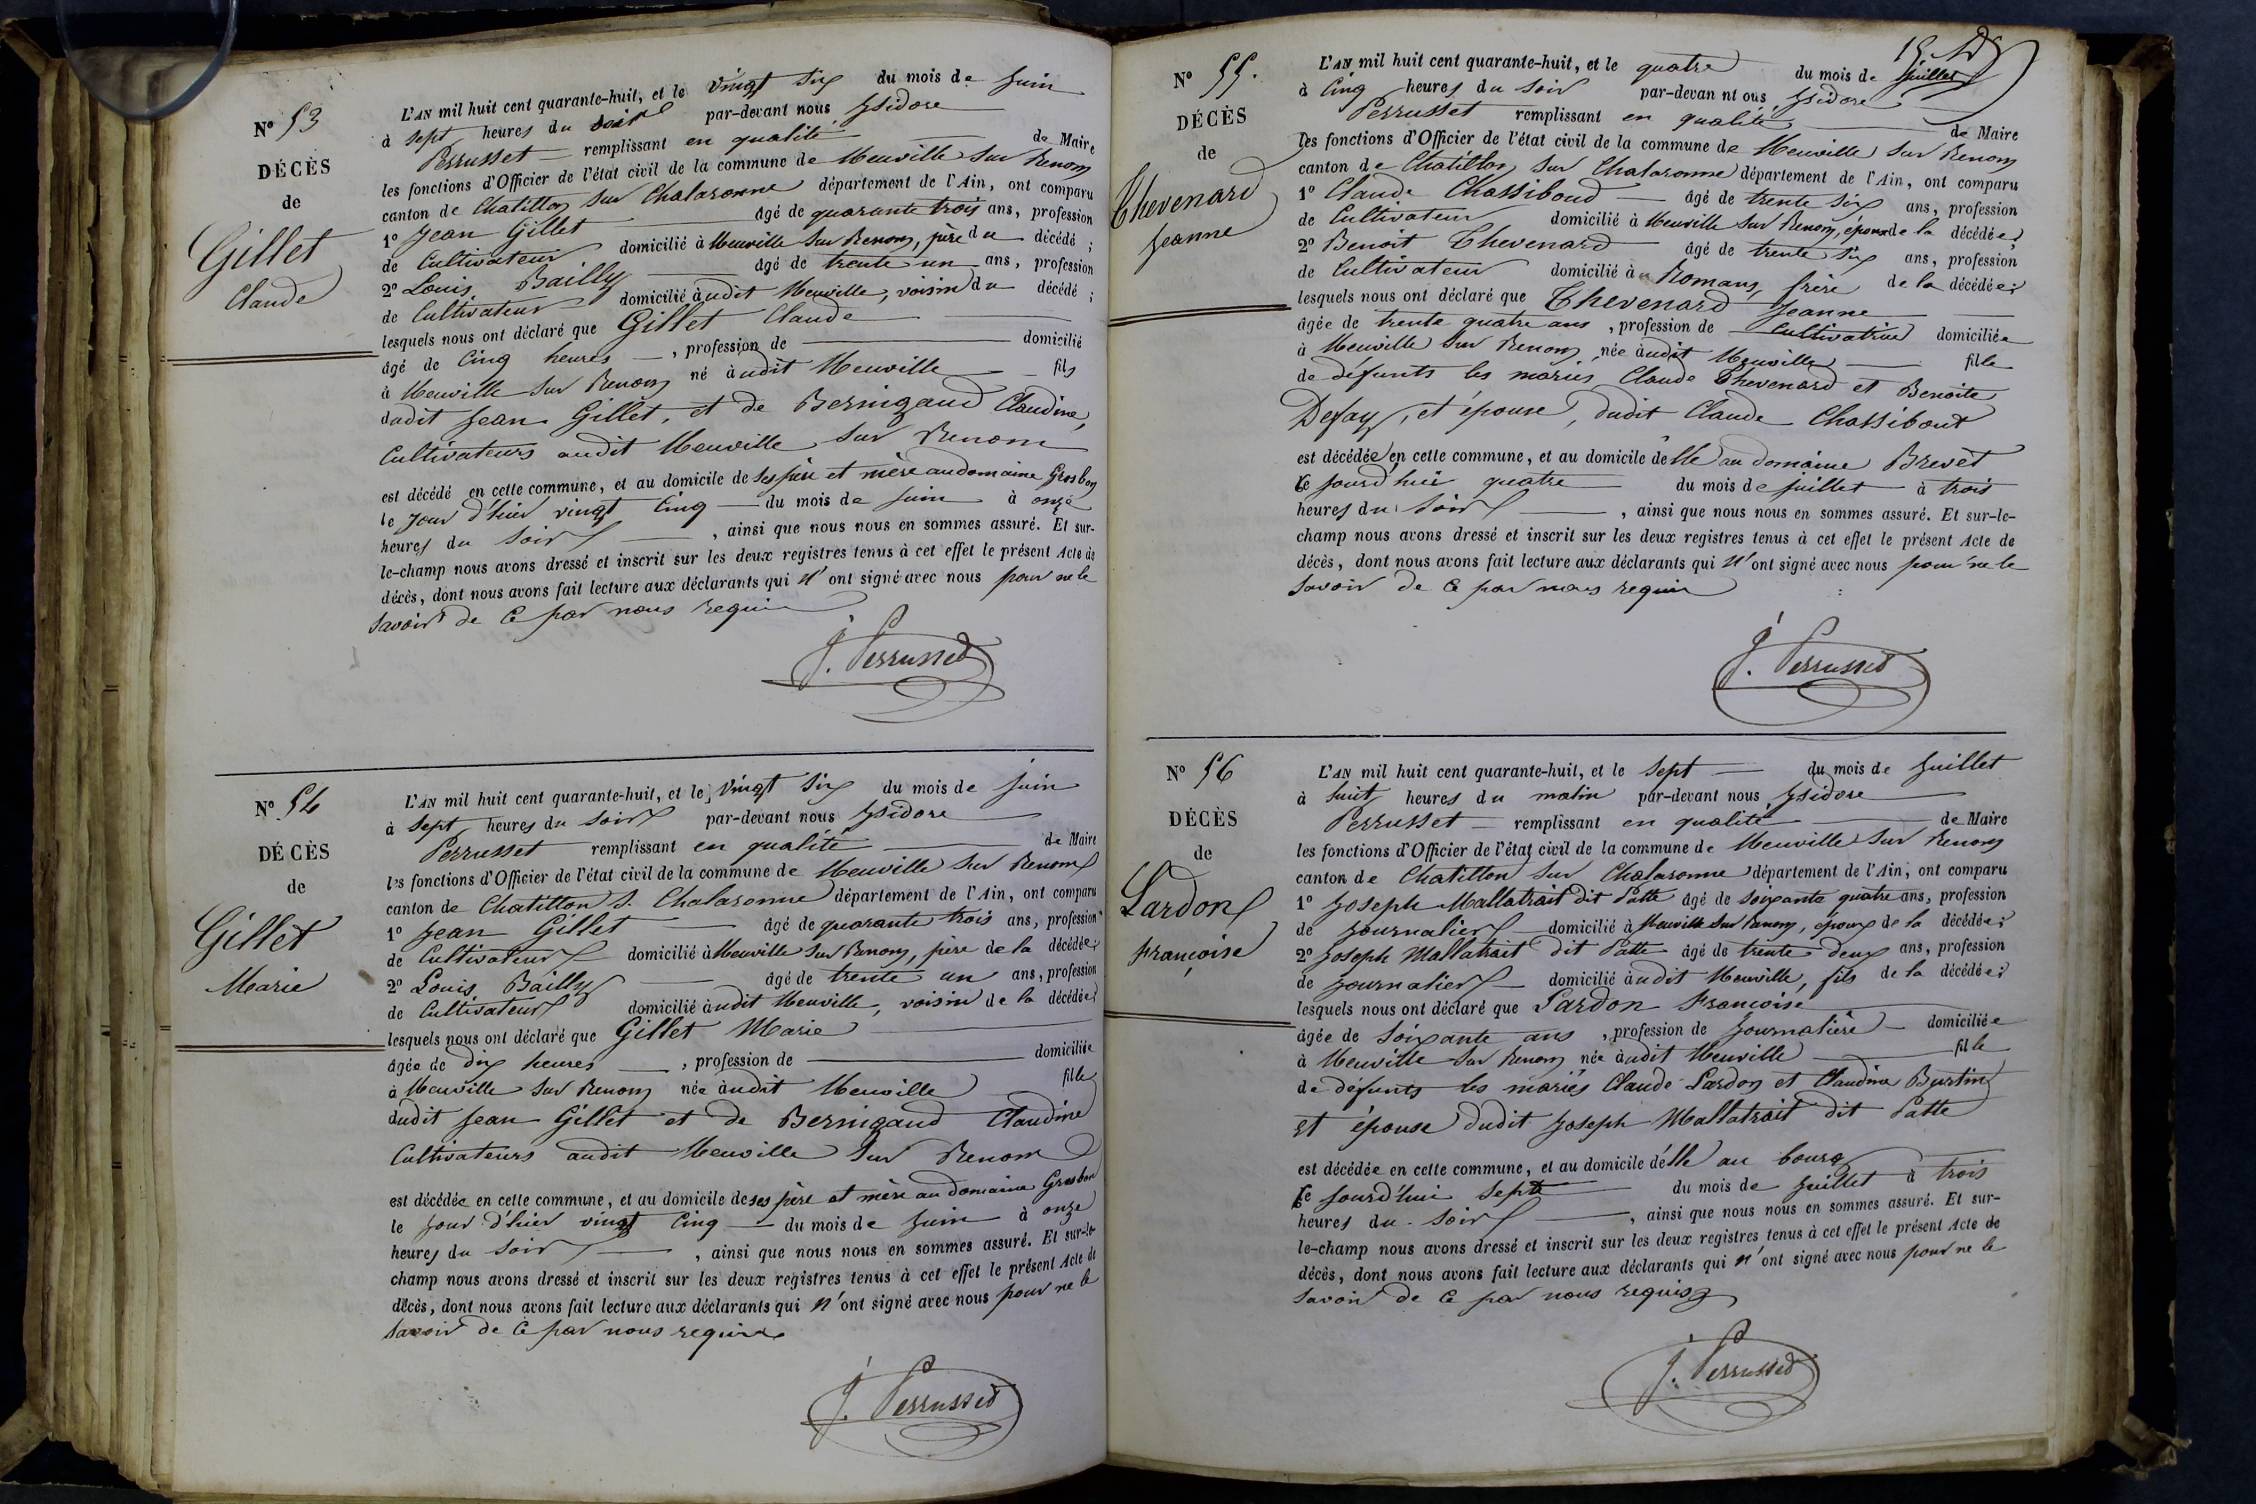 N° 53
DÉCÈS
de
Gillet
Claude
L'AN mil huit cent quarante-huit, et le vingt six du mois de juin
à sept heures du soir par-devant nous Isidore
Perrusset remplissant en qualité de Maire
les fonctions d'Officier de l'état civil de la commune de Neuville sur Renom
canton de Chatillon sur Chalaronne département de l'Ain, ont comparu
1° Jean Gillet âgé de quarante trois ans, profession
de Cultivateur domicilié à Neuville sur Renom, père du décédé ;
2° Louis Bailly âgé de trente un ans, profession
de Cultivateur domicilié audit Neuville, voisin du décédé ;
lesquels nous ont déclaré que Gillet Claude
âgé de Cinq heures , profession de domicilié
à Neuville sur Renom né audit Neuville fils
dudit Jean Gillet, et de Bernigaud Claudine,
Cultivateurs audit Neuville sur Renom
est décédé en cette commune, et au domicile de ses père et mère au domaine Grosbon
le jour d'hier vingt Cinq du mois de juin à onze
heures du soir , ainsi que nous nous en sommes assuré. Et sur-
le-champ nous avons dressé et inscrit sur les deux registres tenus à cet effet le présent Acte de
décès, dont nous avons fait lecture aux déclarants qui n'ont signé avec nous pour ne le
savoir de ce par nous requis
J. Perrusset
N° 54
DÉCÈS
de
Gillet
Marie
L'AN mil huit cent quarante-huit, et le vingt six du mois de juin
à sept heures du soir par-devant nous Isidore
Perrusset remplissant en qualité de Maire
les fonctions d'Officier de l'état civil de la commune de Neuville sur Renom
canton de Chatillon s. Chalaronne département de l'Ain, ont comparu
1° Jean Gillet âgé de quarante trois ans, profession
de Cultivateur domicilié à Neuville sur Renom, père de la décédée ;
2° Louis Bailly âgé de trente un ans, profession
de Cultivateur domicilié audit Neuville, voisin de la décédée ;
lesquels nous ont déclaré que Gillet Marie
âgée de dix heures , profession de domiciliée
à Neuville sur Renom née audit Neuville fille
dudit Jean Gillet et de Bernigaud Claudine
Cultivateurs audit Neuville sur Renom
est décédée en cette commune, et au domicile de ses père et mère au domaine Grosbon
le jour d'hier vingt Cinq du mois de juin à onze
heures du soir , ainsi que nous nous en sommes assuré. Et sur-le-
champ nous avons dressé et inscrit sur les deux registres tenus à cet effet le présent Acte de
décès, dont nous avons fait lecture aux déclarants qui n'ont signé avec nous pour ne le
savoir de ce par nous requis
J. Perrusset
15.
N° 55.
DÉCÈS
de
Thevenard
Jeanne
L'AN mil huit cent quarante-huit, et le quatre du mois de juillet
à Cinq heures du soir par-devan nt ous Isidore
Perrusset remplissant en qualité de Maire
les fonctions d'Officier de l'état civil de la commune de Neuville sur Renom
canton de Chatillon sur Chalaronne département de l'Ain, ont comparu
1° Claude Chassiboud âgé de trente six ans, profession
de Cultivateur domicilié à Neuville sur Renom, époux de la décédée ;
2° Benoit Thevenard âgé de trente six ans, profession
de Cultivateur domicilié à Romans, frère de la décédée ;
lesquels nous ont déclaré que Thevenard Jeanne
âgée de trente quatre ans , profession de Cultivatrice domiciliée
à Neuville sur Renom née audit Neuville fille
de défunts les mariés Claude Thevenard et Benoite
Defay, et épouse, dudit Claude Chassibout
est décédée en cette commune, et au domicile d'elle au domaine Brevet
Ce jourd'hui quatre du mois de juillet à trois
heures du soir , ainsi que nous nous en sommes assuré. Et sur-le-
champ nous avons dressé et inscrit sur les deux registres tenus à cet effet le présent Acte de
décès, dont nous avons fait lecture aux déclarants qui n'ont signé avec nous pour ne le
savoir de ce par nous requis
J. Perrusset
N° 56
DÉCÈS
de
Lardon
Françoise
L'AN mil huit cent quarante-huit, et le sept du mois de juillet
à huit heures du matin par-devant nous Isidore
Perrusset remplissant en qualité de Maire
les fonctions d'Officier de l'état civil de la commune de Neuville sur Renom
canton de Chatillon sur Chalaronne département de l'Ain, ont comparu
1° Joseph Mallatrait dit Patte âgé de soixante quatre ans, profession
de journalier domicilié à Neuville sur Renom, époux de la décédée ;
2° Joseph Mallatrait dit Patte âgé de trente deux ans, profession
de journalier domicilié audit Neuville, fils de la décédée ;
lesquels nous ont déclaré que Lardon Françoise
âgée de soixante ans , profession de journalière domiciliée
à Neuville sur Renom née audit Neuville fille
de défunts les mariés Claude Lardon et Claudine Burtin
et épouse dudit Joseph Mallatrait dit Patte
est décédée en cette commune, et au domicile d'elle au bourg
Ce jourd'hui sept du mois de juillet à trois
heures du soir , ainsi que nous nous en sommes assuré. Et sur-
le-champ nous avons dressé et inscrit sur les deux registres tenus à cet effet le présent Acte de
décès, dont nous avons fait lecture aux déclarants qui n'ont signé avec nous pour ne le
savoir de ce par nous requis
J. Perrusset